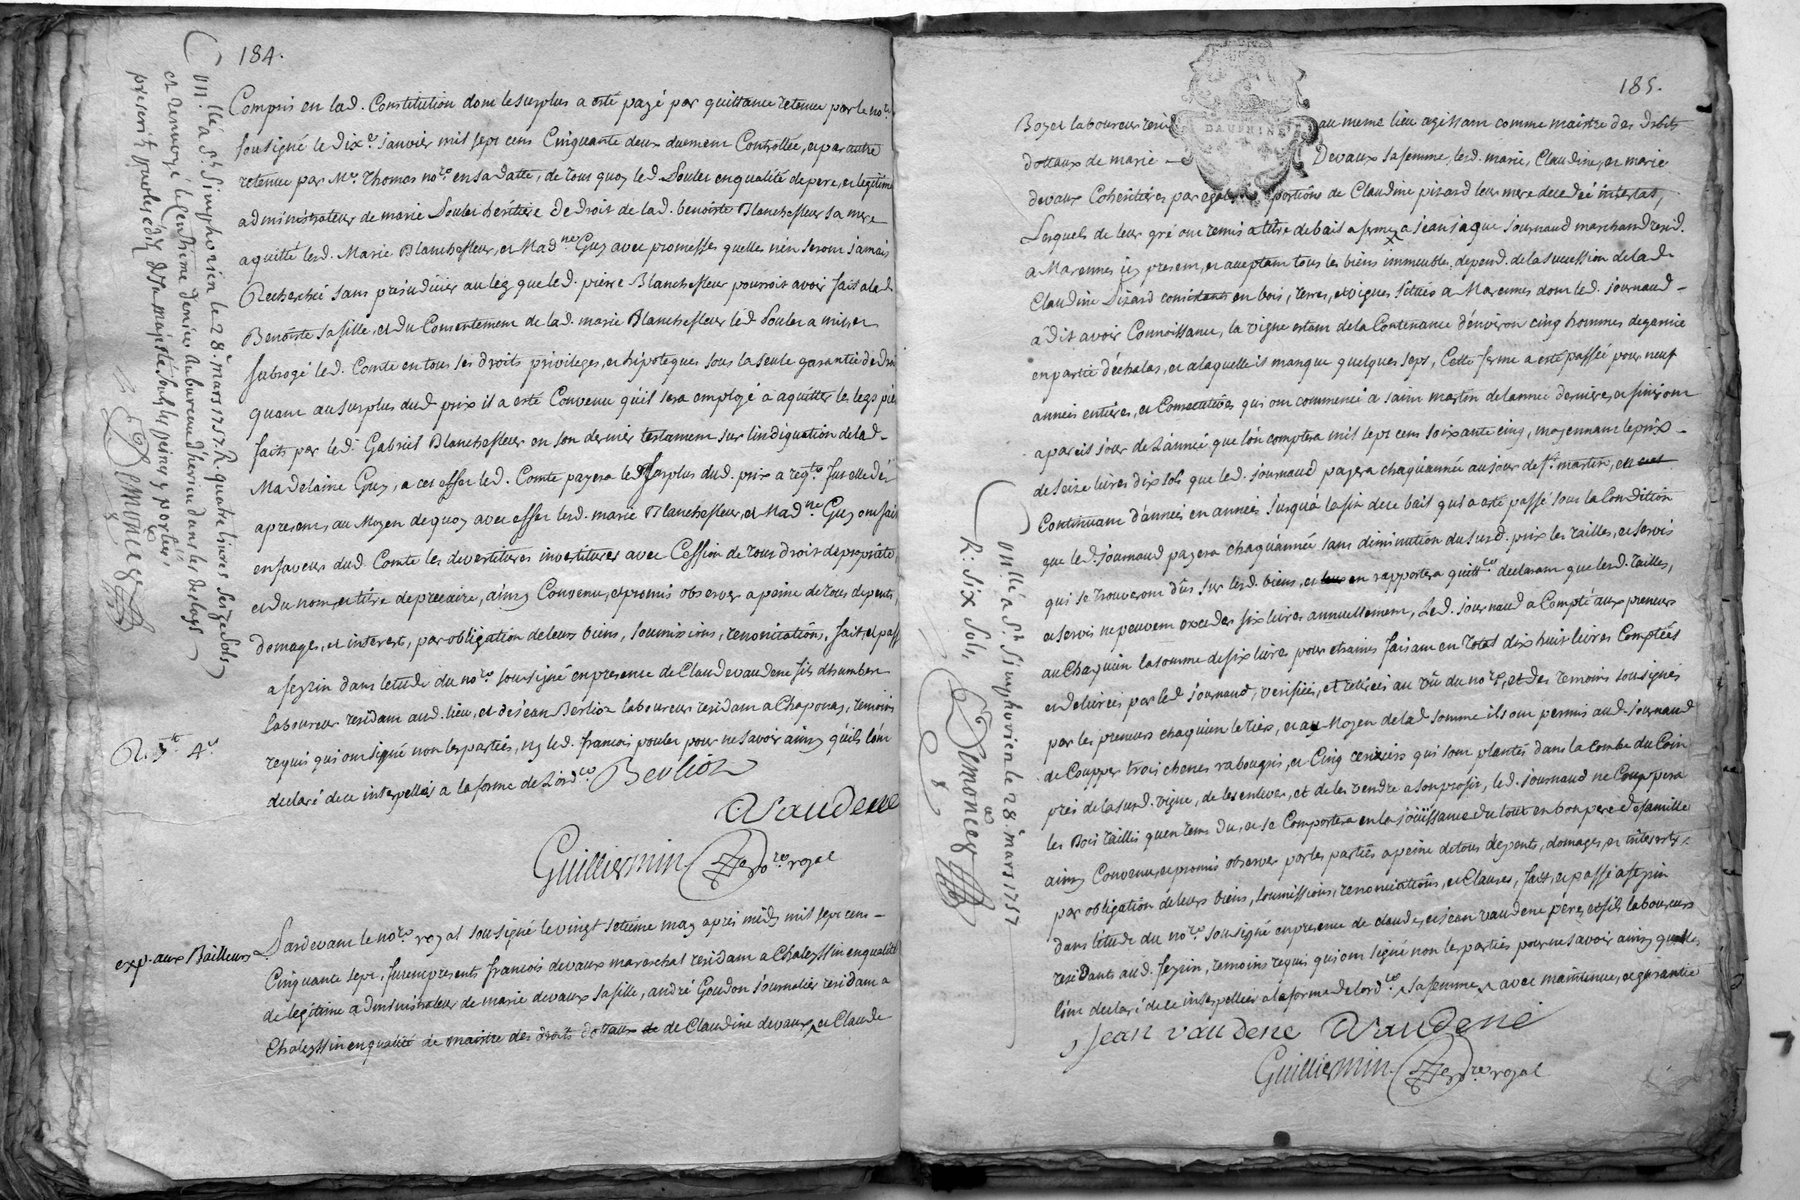 184.
Compris en lad. Constitution dont le surplus a esté payé par quittance retenue par le no.re
sousigné le dix.e janvier mil sept cens Cinquante deux duement Controllée, et par autre
retenue par M.e Thomas no.re en sa datte, de tous quoy led. Poulet en qualité de pere, et legitime
administrateur de marie Poulet heritiere de droit de lad. benoiste Blanchefleur sa mere
a quitté lesd. Marie Blanchefleur, et Mad.ne Guy avec promesses quelle n'en seront jamais
Recherchée sans prejudicier au leg que led. pierre Blanchefleur pourroit avoir fait a lad.
Benoiste sa fille, et du Consentement de lad. marie Blanchefleur led. Poulet a mis, et
subrogé led. Comte en tous ses droits privileges, et hipoteques sous la seule garantie de droit
quant au surplus dud. prix il a esté Convenu qu'il sera employé a aquitter les legs pies
faits par led. Gabriel Blanchefleur en son dernier testament sur l'indiquation de lad.
Madelaine Guy, a cet effet led. Comte payera led. surplus dud. prix a req.te sur elle dès
apresent, au Moyen de quoy avec effet lesd. marie Blanchefleur, et Mad.ne Guy ont fait
en faveur dud. Comte les devestitures investitures avec Cession de tous droit de proprieté,
et du nom, et titre de precaire, ainsy Convenu, et promis observer a peine de tous depents,
domages, et interest, par obligation de leurs biens, soumissions, renonciations, fait, et passé
a feyzin dans letude du no.re sousigné en presence de Claude vaudene fils d'humbert
laboureur residant aud. lieu, et de jean Berlioz laboureur residant a Chaponay, temoins
requis qui ont signé non les parties, ny led. françois poulet pour ne savoir ainsy qu'ils l'ont
declaré de ce interpellés a la forme de l'ord.ce Berlioz
Vaudene
Guilliermin no.re royal
On.llé a S.t Simphorien le 28.e mars 1757. R. quatre livres seize sols
et renvoyé le Centieme denier au bureau d'heyrieu dans les delays
prescrits par les édits de sa majesté sous les peines y portées,
Demoncez
R. 3.tt 4.s
exp. aux Bailleurs
Pardevant le no.re royal sousigné le vingt setieme may après midy mil sept cens
Cinquante sept, furent presents françois devaux mareschal residant a Chaleyssin en qualité
de legitime administrateur de marie devaux sa fille, andré Goudon journalier residant a
Chaleyssin en qualité de maistre des droits dotaux de de Claudine devaux, et Claude
185.
DAUPHINÉ
Boyet laboureur resid. au meme lieu agissant comme maistre des droits
dottaux de marie Devaux sa femme, lesd. marie, Claudine, et marie
devaux Coheritieres par egales portions de Claudine pizard leur mere decedée intestat,
Lesquels de leur gré ont remis a titre de bail a ferme a jean jaque journaud marchand resid.
a Marennes icy present, et acceptant tous les biens immeubles depend. de la succession de lad.
Claudine Pizard consistants en bois, terres, et vignes scitués a Marennes dont led. journaud
a dit avoir Connoissance, la vigne estant de la Contenance d'environ cinq hommes degarnie
en partie d'échalas, et a laquelle il manque quelques seps, Cette ferme a esté passée pour neuf
années entieres, et Consecutives qui ont commencé a saint martin de l'année derniere, et finiront
a pareil jour de l'année que l'on comptera mil sept cens soixante cinq, moyennant le prix
de seize livres dix sols que led. journaud payera chaqu'année au jour de s.t martin, et ceu
Continuant d'années en années jusqu'à la fin de ce bail qui a esté passé sous la Condition
que led. journaud payera chaqu'année sans diminution du susd. prix les tailles, et servis
qui se trouveront dûs sur lesd. biens, et en rapportera quitt.ce declarant que lesd. tailles,
et servis ne peuvent exceder six livres annuellement, Led. journaud a Compté aux preneurs
au Chaquin la somme de six livres pour etraines faisant en total dix huit livres Comptées
et delivrées par led. journaud, verifiées, et retirées au vû du no.re, et des temoins sousignés
par les preneurs chaquin le tiers, et au Moyen de lad. somme ils ont permis aud. journaud
de Coupper trois chenes rabougris, et Cinq cerisiers qui sont plantés dans la Combe du Coin
près de la susd. vigne, de les enlever, et de les vendre a son profit, led. journaud ne Couppera
les Bois taillis qu'en tems du, et se Comportera en la joüissance du tout en bon pere de famille
ainsy Convenu, et promis observer par les parties a peine de tous depents, domages, et interests,
par obligation de leurs biens, soumissions, renonciations, et Clauses, fait, et passé a feyzin
dans l'étude du no.re sousigné en presence de claude, et jean vaudene pere, et fils laboureurs
residants aud. feyzin, temoins requis qui ont signé non les parties pour ne savoir ainsy qu'elles
l'ont declaré de ce interpellées a la forme de l'ord.ce sa femme, avec maintenue, et garantie
Jean vaudene Vaudene
Guilliermin no.re royal
On.llé a S.t Simphorien le 28.e mars 1757
R. Six Sols,
Demoncez